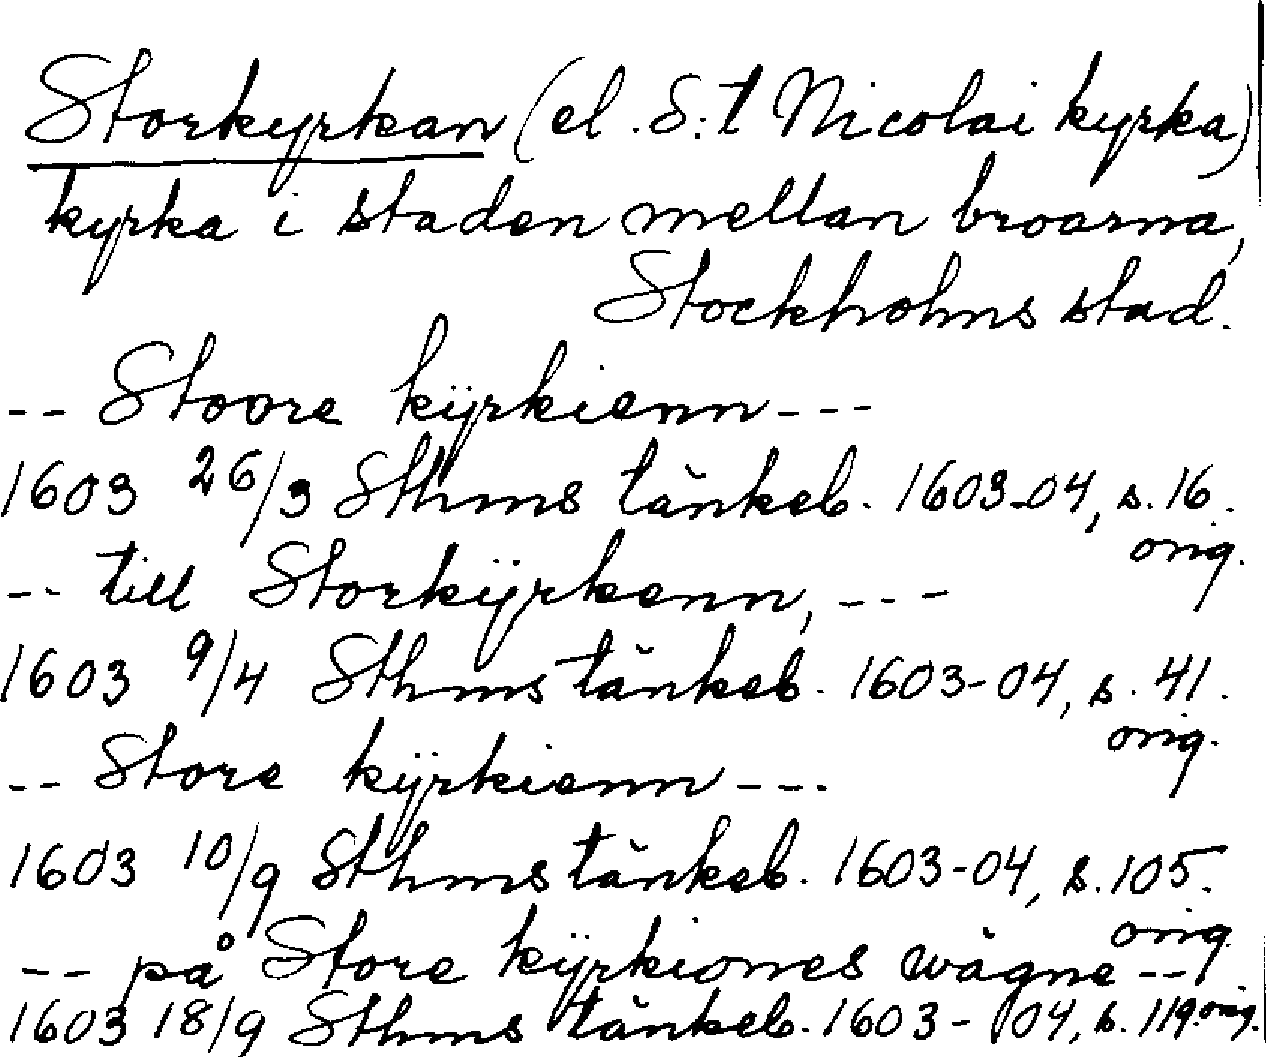 Storkyrkan (el. S:t Nicolai kyrka)
kyrka i staden mellan broarna,
Stockholms stad.
-- Stoore kÿrkienn---
1603 26/3 Sthms tänkeb. 1603-04, s. 16.
orig.
-- till Storkÿrkenn, ---
1603 9/4 Sthms tänkeb. 1603-04, s. 41.
orig.
-- Store kÿrkienn---
1603 10/9 Sthms tänkeb. 1603-04, s. 105.
orig.
-- på Store kÿrkiones wägne --
1603 18/9 Sthms tänkeb. 1603-04, s. 119. orig.